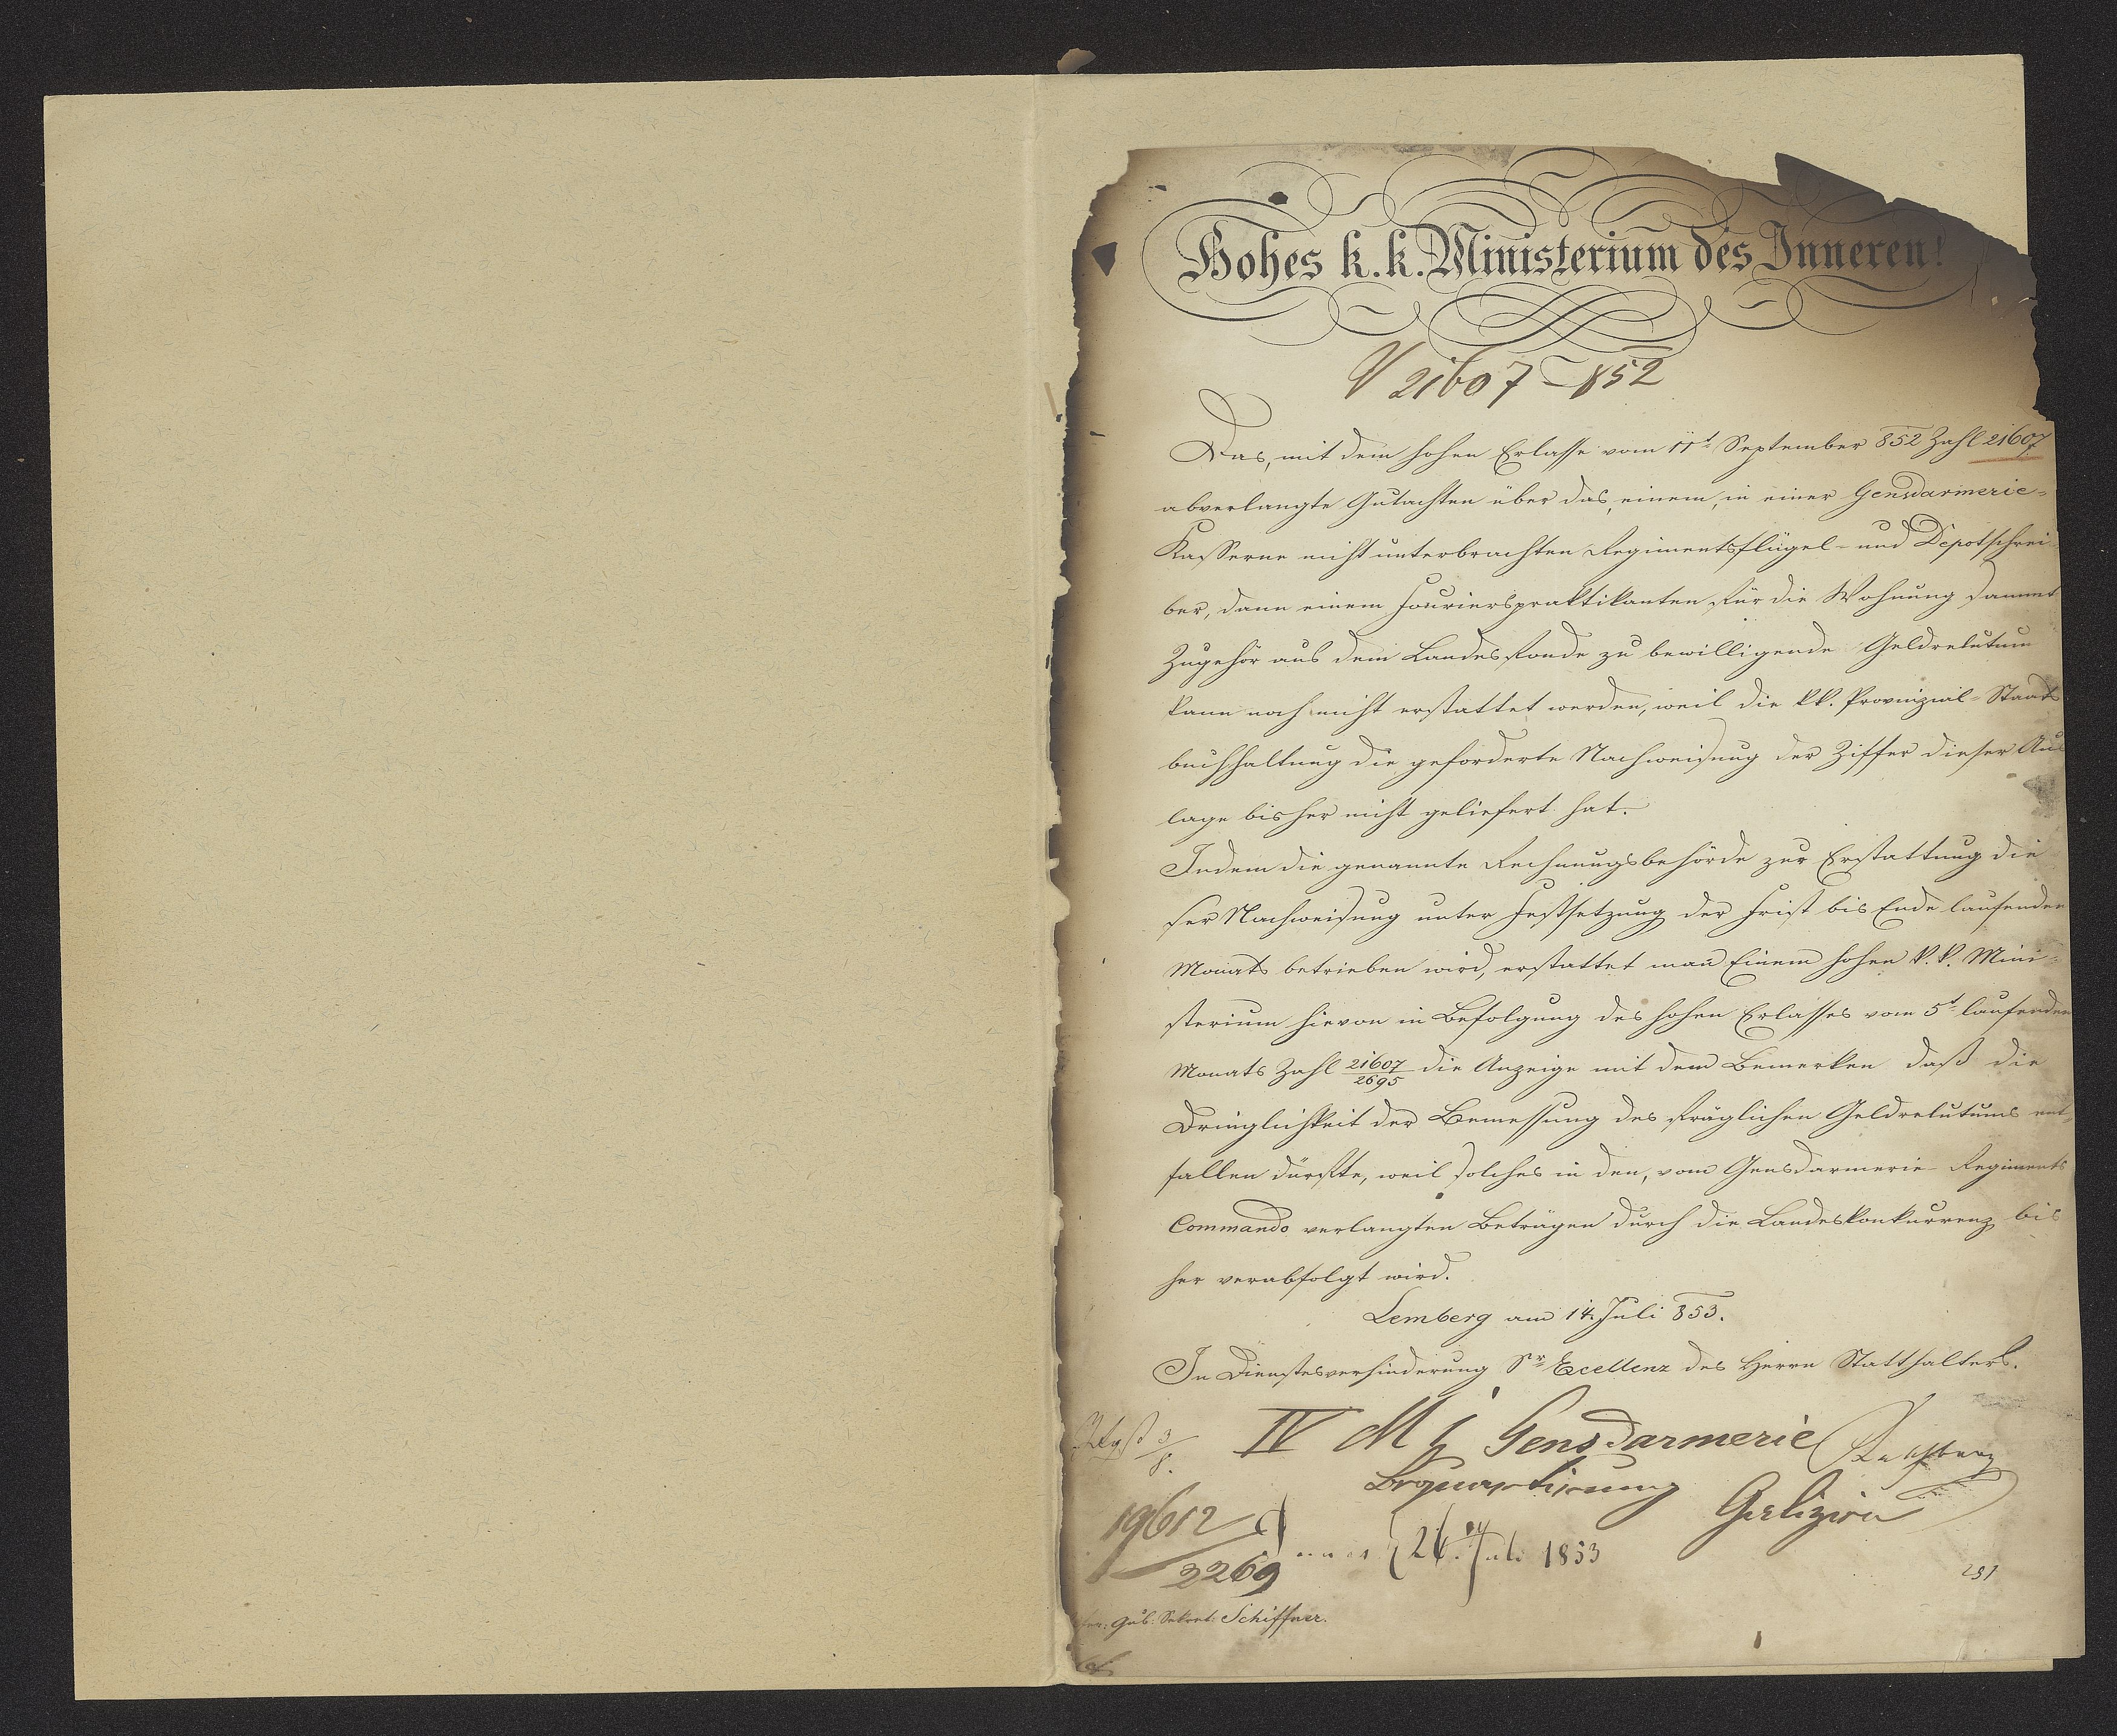 Hohes k. k. Ministerium des Inneren!
V 21607 – 852
Das, mit dem hohen Erlasse vom 11t September 852 Zahl 21607
abverlangte Gutachten über das, einem, in einer Gensdarmerie=
Kasserne nicht unterbrachten Regimentsflügel- und Depotschrei
ber, dann einem Fourierspraktikanten für die Wohnung sammt
Zugehör aus dem Landesfonde zu bewilligende Geldrelutum
kann noch nicht erstattet werden, weil die kk. Provinzial-Staats
buchhaltung die geforderte Nachweisung der Ziffer dieser Aus
lage bisher nicht geliefert hat.
Indem die genannte Rechnungsbehörde zur Erstattung die
ser Nachweisung unter Festsetzung der Frist bis Ende laufenden
Monats betrieben wird, erstattet man Einem hohen k. k. Mini=
sterium hievon in Befolgung des hohen Erlasses vom 5t laufenden
Monats Zahl 21607/2695 die Anzeige mit dem Bemerken daß die
Dringlichkeit der Bemessung des fräglichen Geldrelutums ent
fallen dürfte, weil solches in den, vom Gensdarmerie-Regiments
Commando verlangten Beträgen durch die Landeskonkurrenz bis
her verabfolgt wird.
Lemberg am 14. Juli 853.
In Dienstesverhinderung Sr Excellenz des Herrn Statthalters.
IV M Gensdarmerie
Bequartirung
Galizien
19612/2269
26. Juli 1853
291
Gub: Sekret: Schiffner.